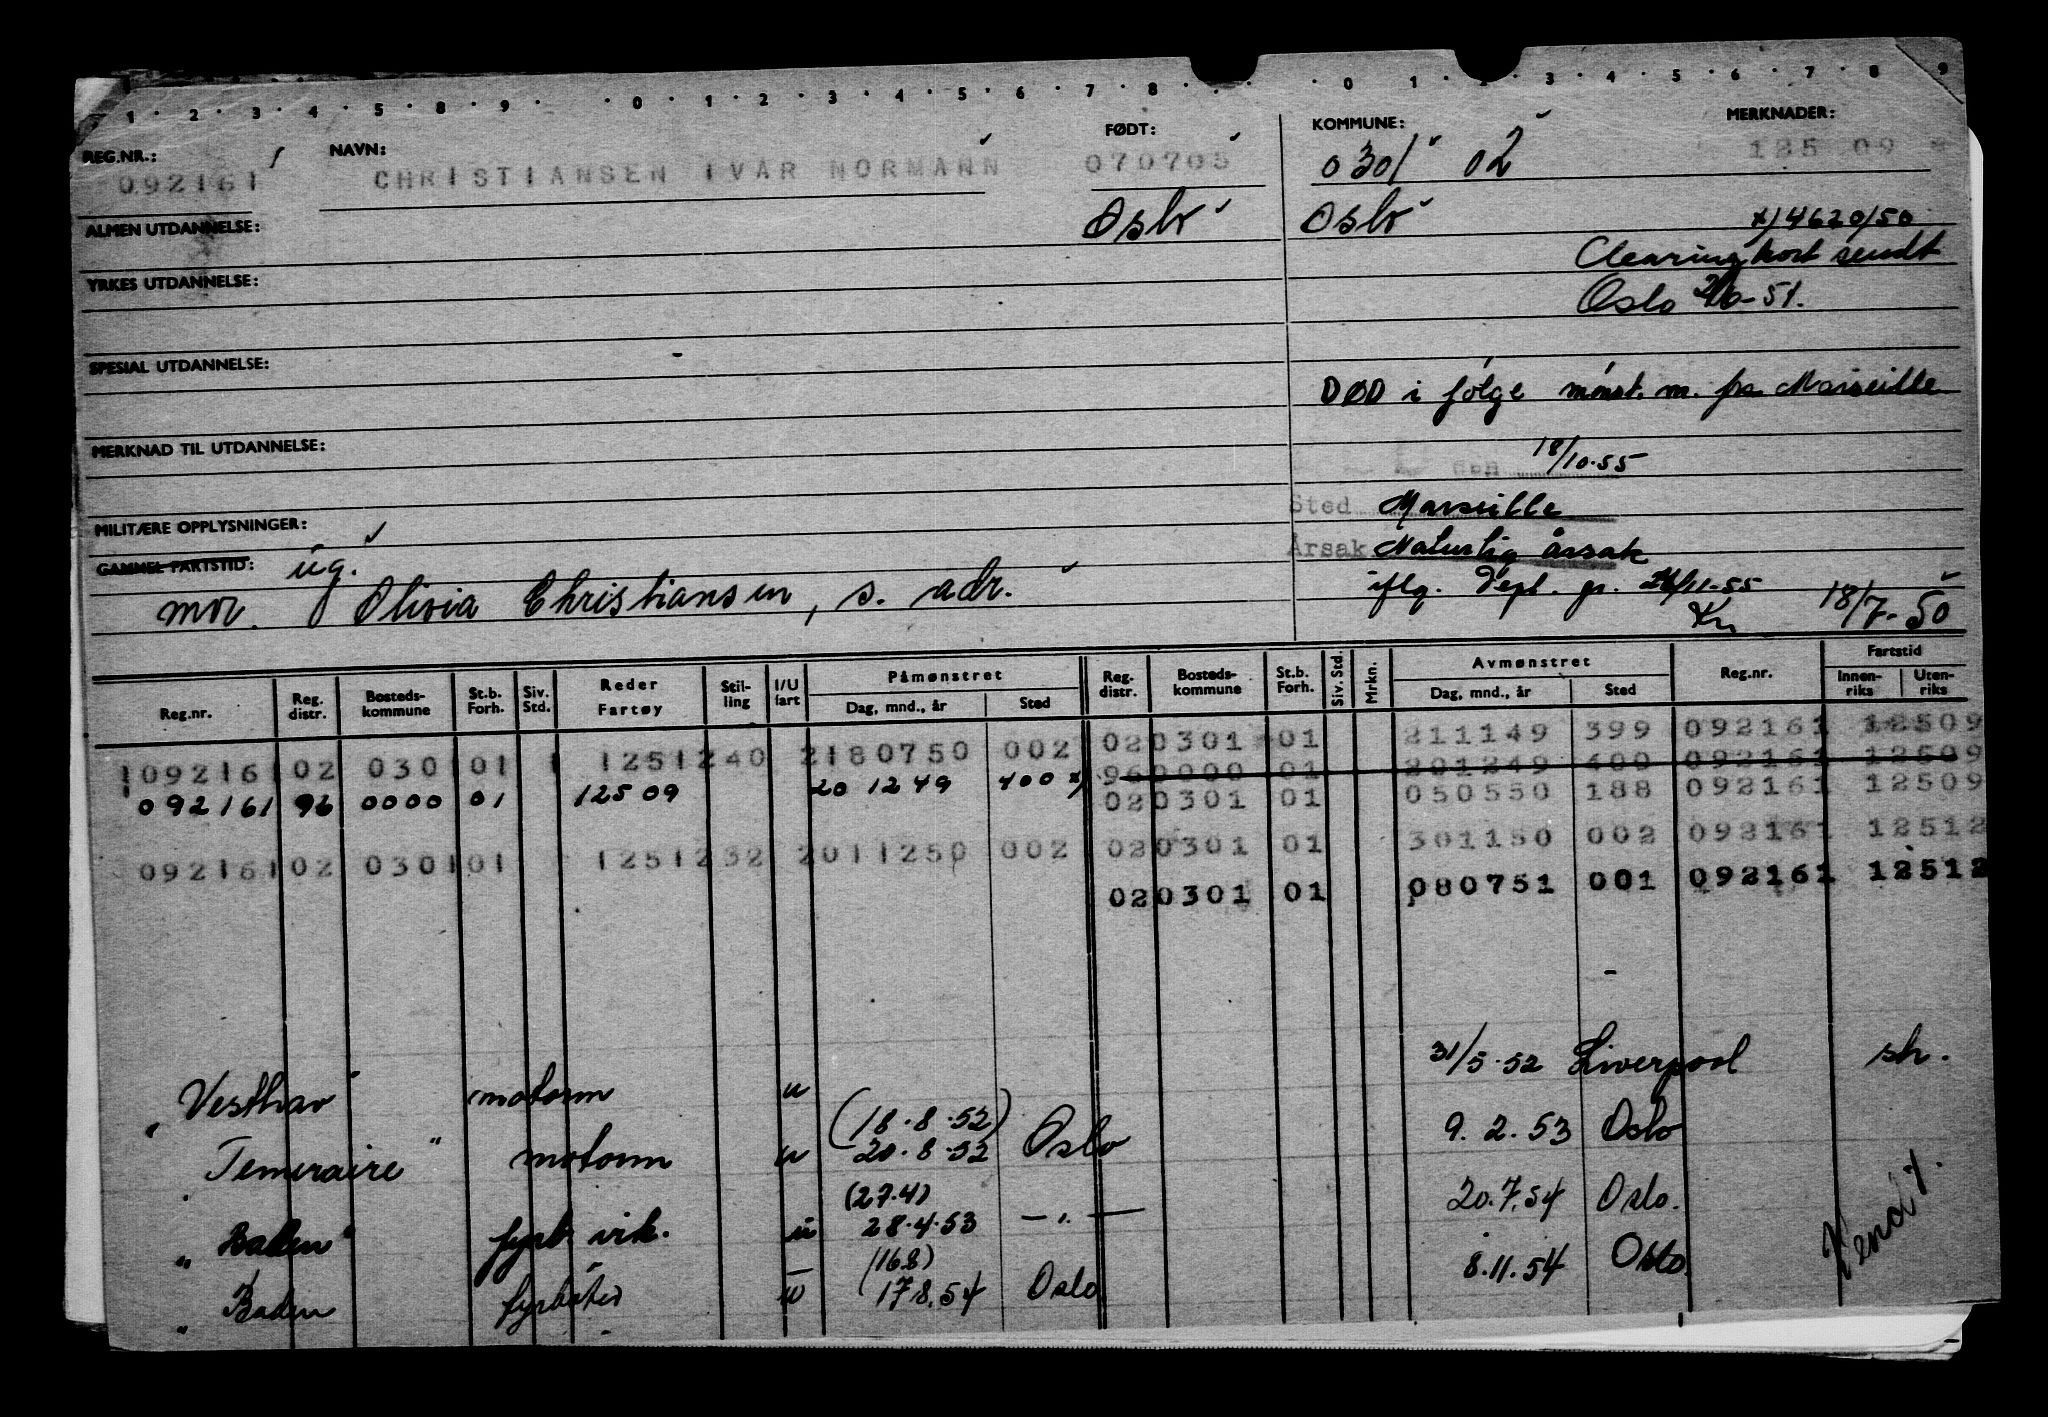 1 · 2 · 3 · 4 · 5 · 8 · 9 · · 0 · 1 · 2 · 3 · 4 · 5 · 6 · 7 · 8 · · · · 0 1 · 2 · 3 · 4 · 5 · 6 · 7 · 8 · 9
REG.NR.: NAVN: FØDT: KOMMUNE: MERKNADER:
092161 CHRISTIANSEN IVAR NORMANN 070705 0301 02 125 09
ALMEN UTDANNELSE: Oslo Oslo x) 4620/50
Clearingkort sendt
YRKES UTDANNELSE: Oslo -51.
SPESIAL UTDANNELSE:
DØD i følge mønst. m. fra Marseille
MERKNAD TIL UTDANNELSE:
den 18/10-55
Sted Marseille
MILITÆRE OPPLYSNINGER:
Årsak Naturlig årsak
GAMMEL FARTSTID: ug.
iflg. Dept. gr. /11-55 18/7-50
mor. Olivia Christiansen, s. adr. Kn
Reg.nr. Reg. distr. Bosteds-kommune St.b. Forh. Siv. Std. Reder Fartøy Stil-ling I/U fart Påmønstret Dag, mnd., år Sted Reg. distr. Bosteds-kommune St.b. Forh. Siv. Std. Mrkn. Avmønstret Dag, mnd., år Sted Reg.nr. Fartstid Innen-riks Uten-riks
02 0301 01 211149 399 092161 12509
1 092161 02 0301 01 1 12512 40 2 180750 002 96 0000 01 201249 400 092161 12509
092161 96 0000 01 125 09 20 12 49 400 x) 02 0301 01 050550 188 092161 12509
02 0301 01 301150 002 092161 12512
092161 02 0301 01 12512 32 2 011250 002
02 0301 01 080751 001 092161 12512
"Vesthav" motorm u 31/5-52 Liverpool sh.
(18.8.52)
"Temeraire" motorm u 20.8.52 Oslo 9.2.53 Oslo
(27.4)
"Baden" fyrb vik. u 28.4.53 — " — 20.7.54 Oslo.
(16.8)
"Baden fyrbøter u 17.8.54 Oslo 8.11.54 Oslo.
Vend!